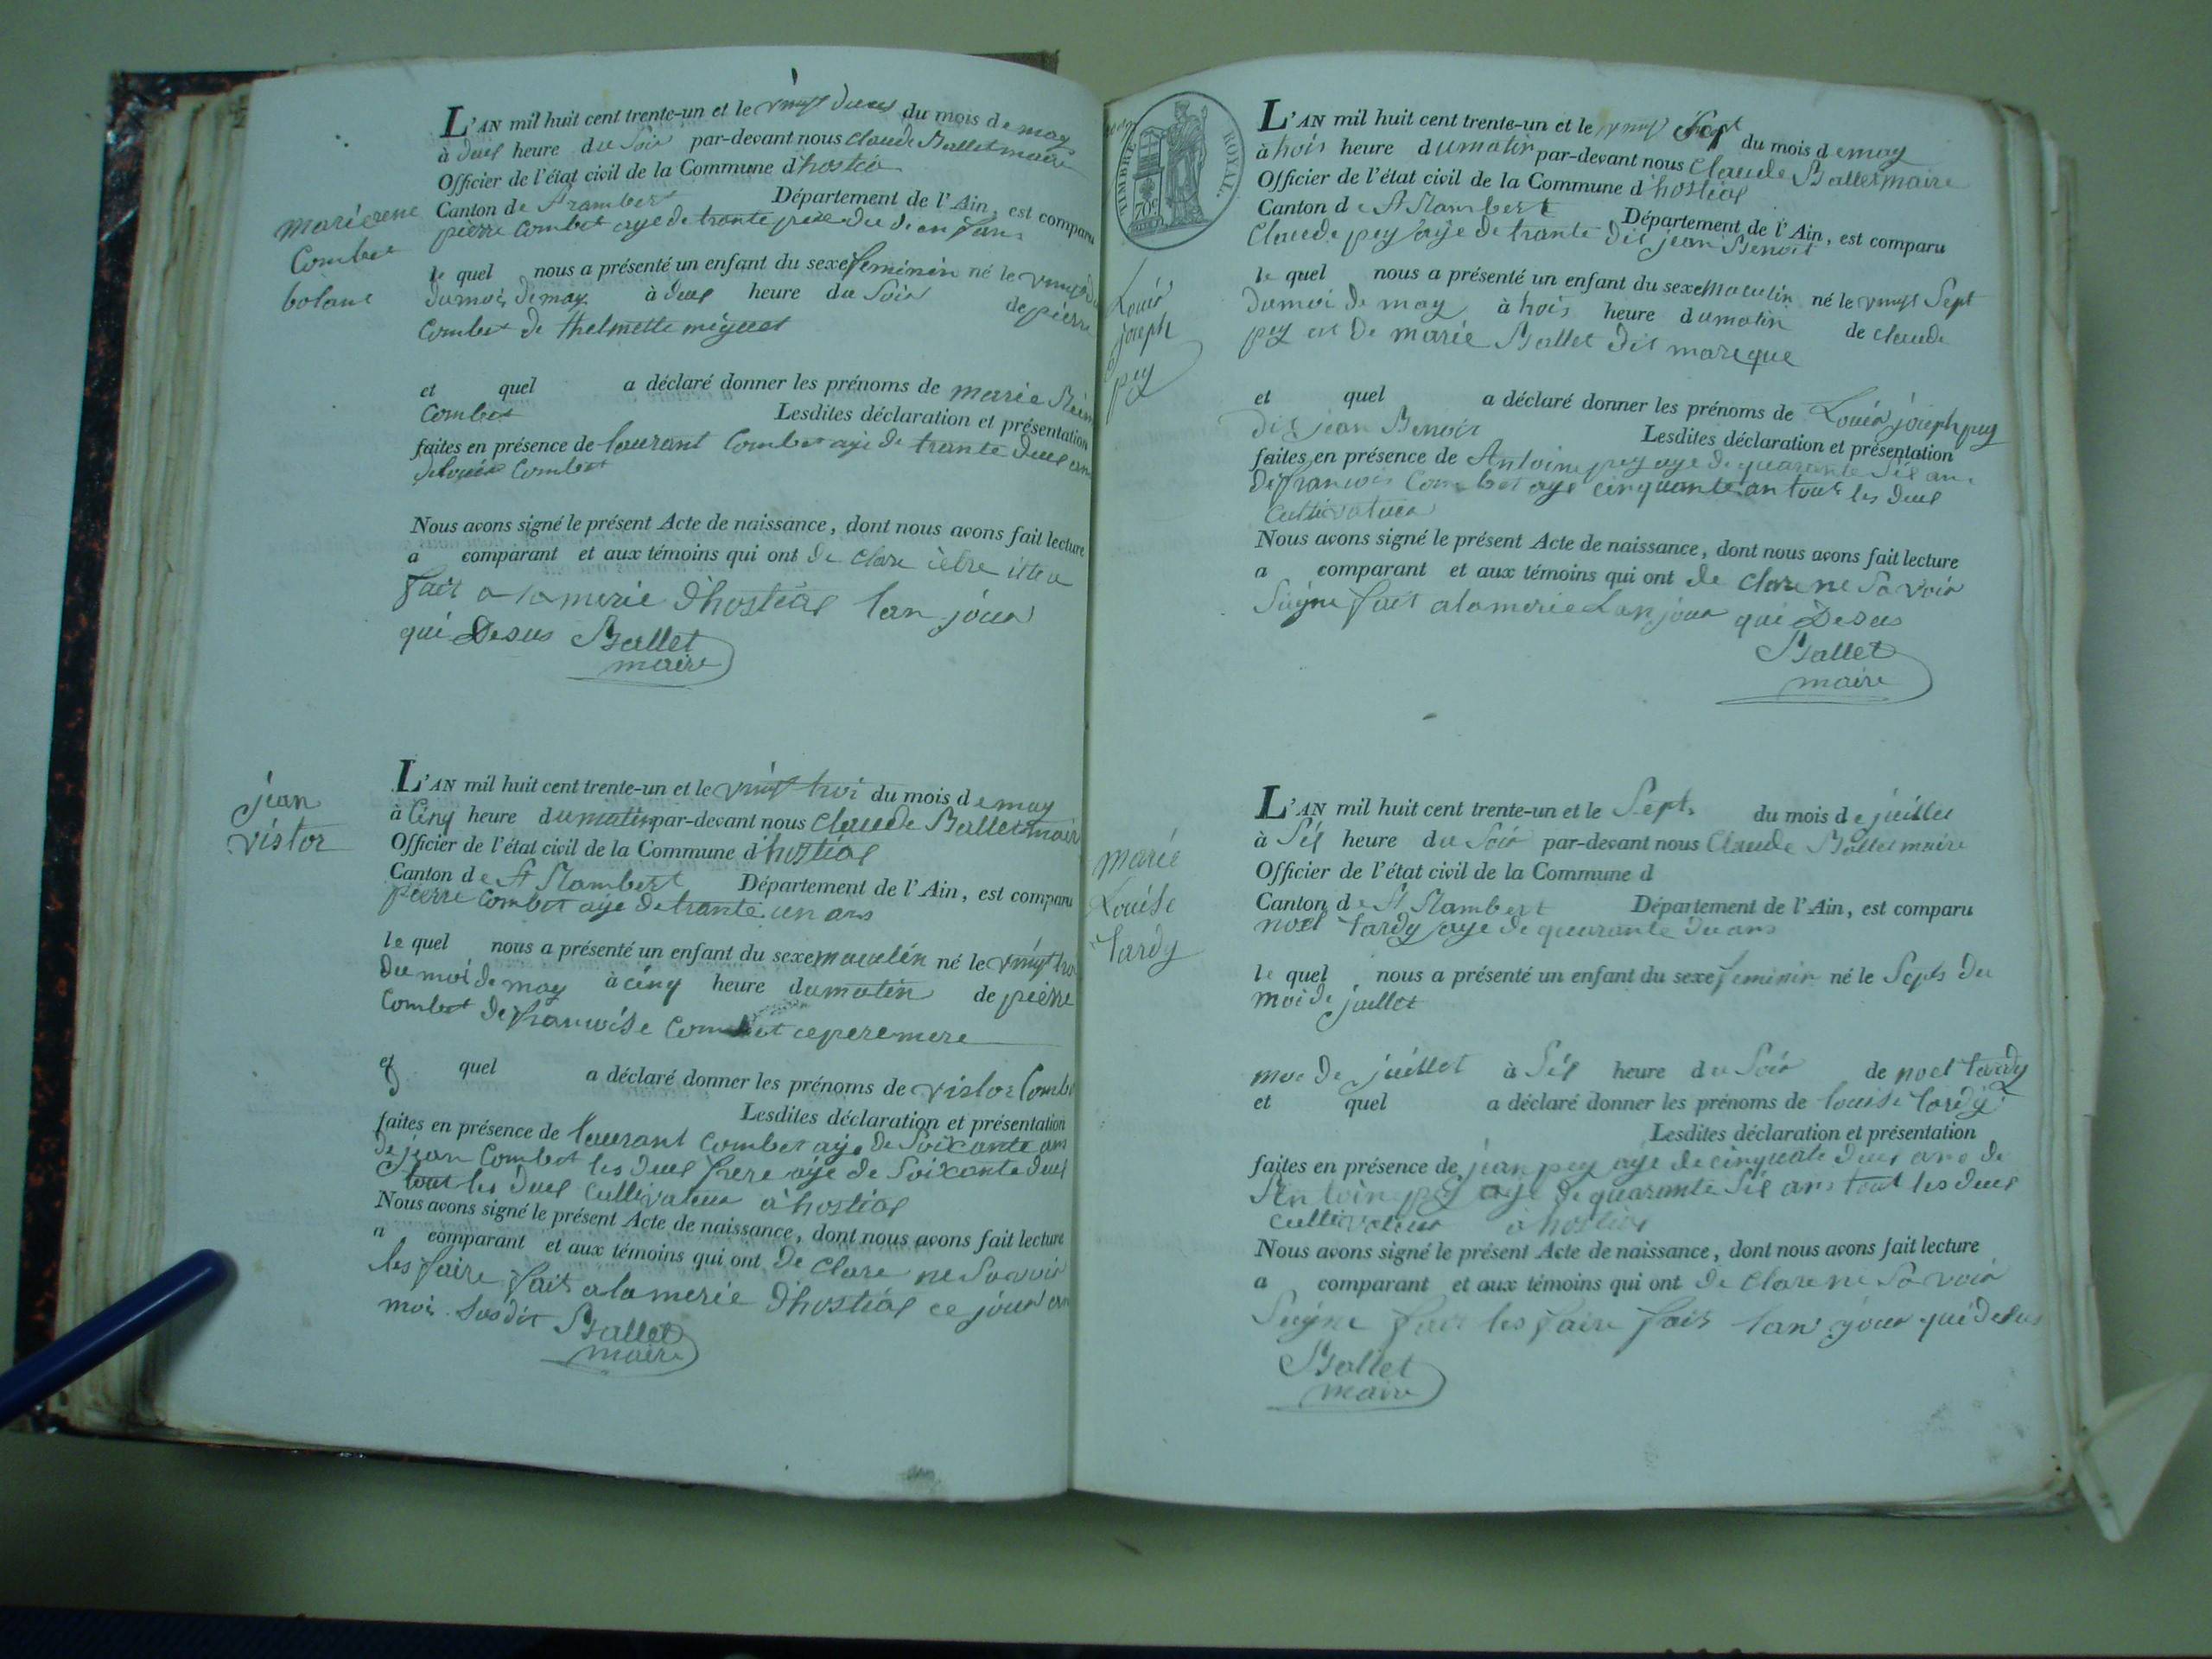 marierene
Combet
bolane
L'AN mil huit cent trente-un et le vingt deux du mois de may
à deus heure du Soir par-devant nous Claude Ballet maire
Officier de l'état civil de la Commune d'hostia
Canton de St rambert Département de l'Ain, est comparu
pierre Combet aye de trante
le quel nous a présenté un enfant du sexe feminin né le
du mois de may à deus heure du Soir de pierre
Combet de thelmette miguet
et quel a déclaré donner les prénoms de marie
Combet Lesdites déclaration et présentation
faites en présence de laurant Combet aye de trante deus an
de louis Combet
Nous avons signé le présent Acte de naissance, dont nous avons fait lecture
a comparant et aux témoins qui ont de clare
fait a la merie d'hostias lan jour
qui Desus Ballet
maire
jean
vistor
L'AN mil huit cent trente-un et le vingt troi du mois de may
à Cinq heure du matin par-devant nous Claude Ballet maire
Officier de l'état civil de la Commune d'hostias
Canton de St Rambert Département de l'Ain, est comparu
pierre Combet aye de trante un ans
le quel nous a présenté un enfant du sexe maculin né le vingt tro
du moi de may à cinq heure du matin de pierre
Combet de francoise Combet ce pere mere
et quel a déclaré donner les prénoms de vistor Comb
Lesdites déclaration et présentation
faites en présence de laurant Combet aye de Soixante ans
de jean Combet les deus frere aye de Soixante deus
tout les deus Cultivateur à hostias
Nous avons signé le présent Acte de naissance, dont nous avons fait lecture
a comparant et aux témoins qui ont de clare ne Savoir
les faire fait a la merie d'hostias ce jour an
moi Susdit Ballet
maire
TIMBRE ROYAL
70c
Louis
joseph
pey
L'AN mil huit cent trente-un et le vingt Sept du mois de may
à trois heure du matin par-devant nous Claude Ballet maire
Officier de l'état civil de la Commune d'hostias
Canton de St Rambert Département de l'Ain, est comparu
Claude pey aye de trante dit jean Benoit
le quel nous a présenté un enfant du sexe maculin né le vingt Sept
du moi de may à trois heure du matin de claude
pey et de marie Ballet dit mareque
et quel a déclaré donner les prénoms de Louis joseph pey
dit jean Benoit Lesdites déclaration et présentation
faites en présence de Antoine pey aye de quarante Sis an
de francois Combet aye cinquante an tout les deus
Cultivateur
Nous avons signé le présent Acte de naissance, dont nous avons fait lecture
a comparant et aux témoins qui ont de clare ne Savoir
Siigne fait a la merie Lan jour qui Desus
Ballet
maire
marie
Louise
tardy
L'AN mil huit cent trente-un et le Sept du mois de juillet
à Sis heure du Soir par-devant nous Claude Ballet maire
Officier de l'état civil de la Commune d
Canton de St Rambert Département de l'Ain, est comparu
noel tardy aye de quarante du ans
le quel nous a présenté un enfant du sexe feminin né le Sept du
moi de juillet
moi de juillet à Sis heure du Soir de noel tardy
et quel a déclaré donner les prénoms de louise tardy
Lesdites déclaration et présentation
faites en présence de jean pey aye de cinquante deus ans de
Antoine pey aye de quarante Sis ans tout les deus
Cultivateur à hostias
Nous avons signé le présent Acte de naissance, dont nous avons fait lecture
a comparant et aux témoins qui ont de clare ne Savoir
Siigne fair les faire fait lan jour qui desus
Ballet
maire